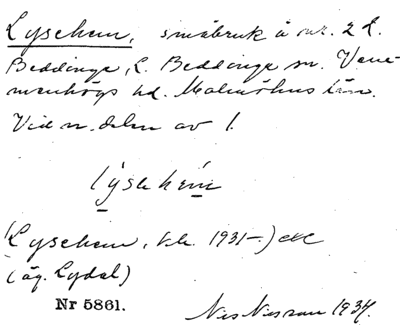 Lysehem, småbruk å nr. 2 L.
Beddinge, L. Beddinge sn. Vem-
menhögs hd. Malmöhus län.
Vid n. delen av 1.
lysehem
(Lysehem, 1931-)
(äg. Lydal)
Nr 5861.
Nils Nilsson 1934.